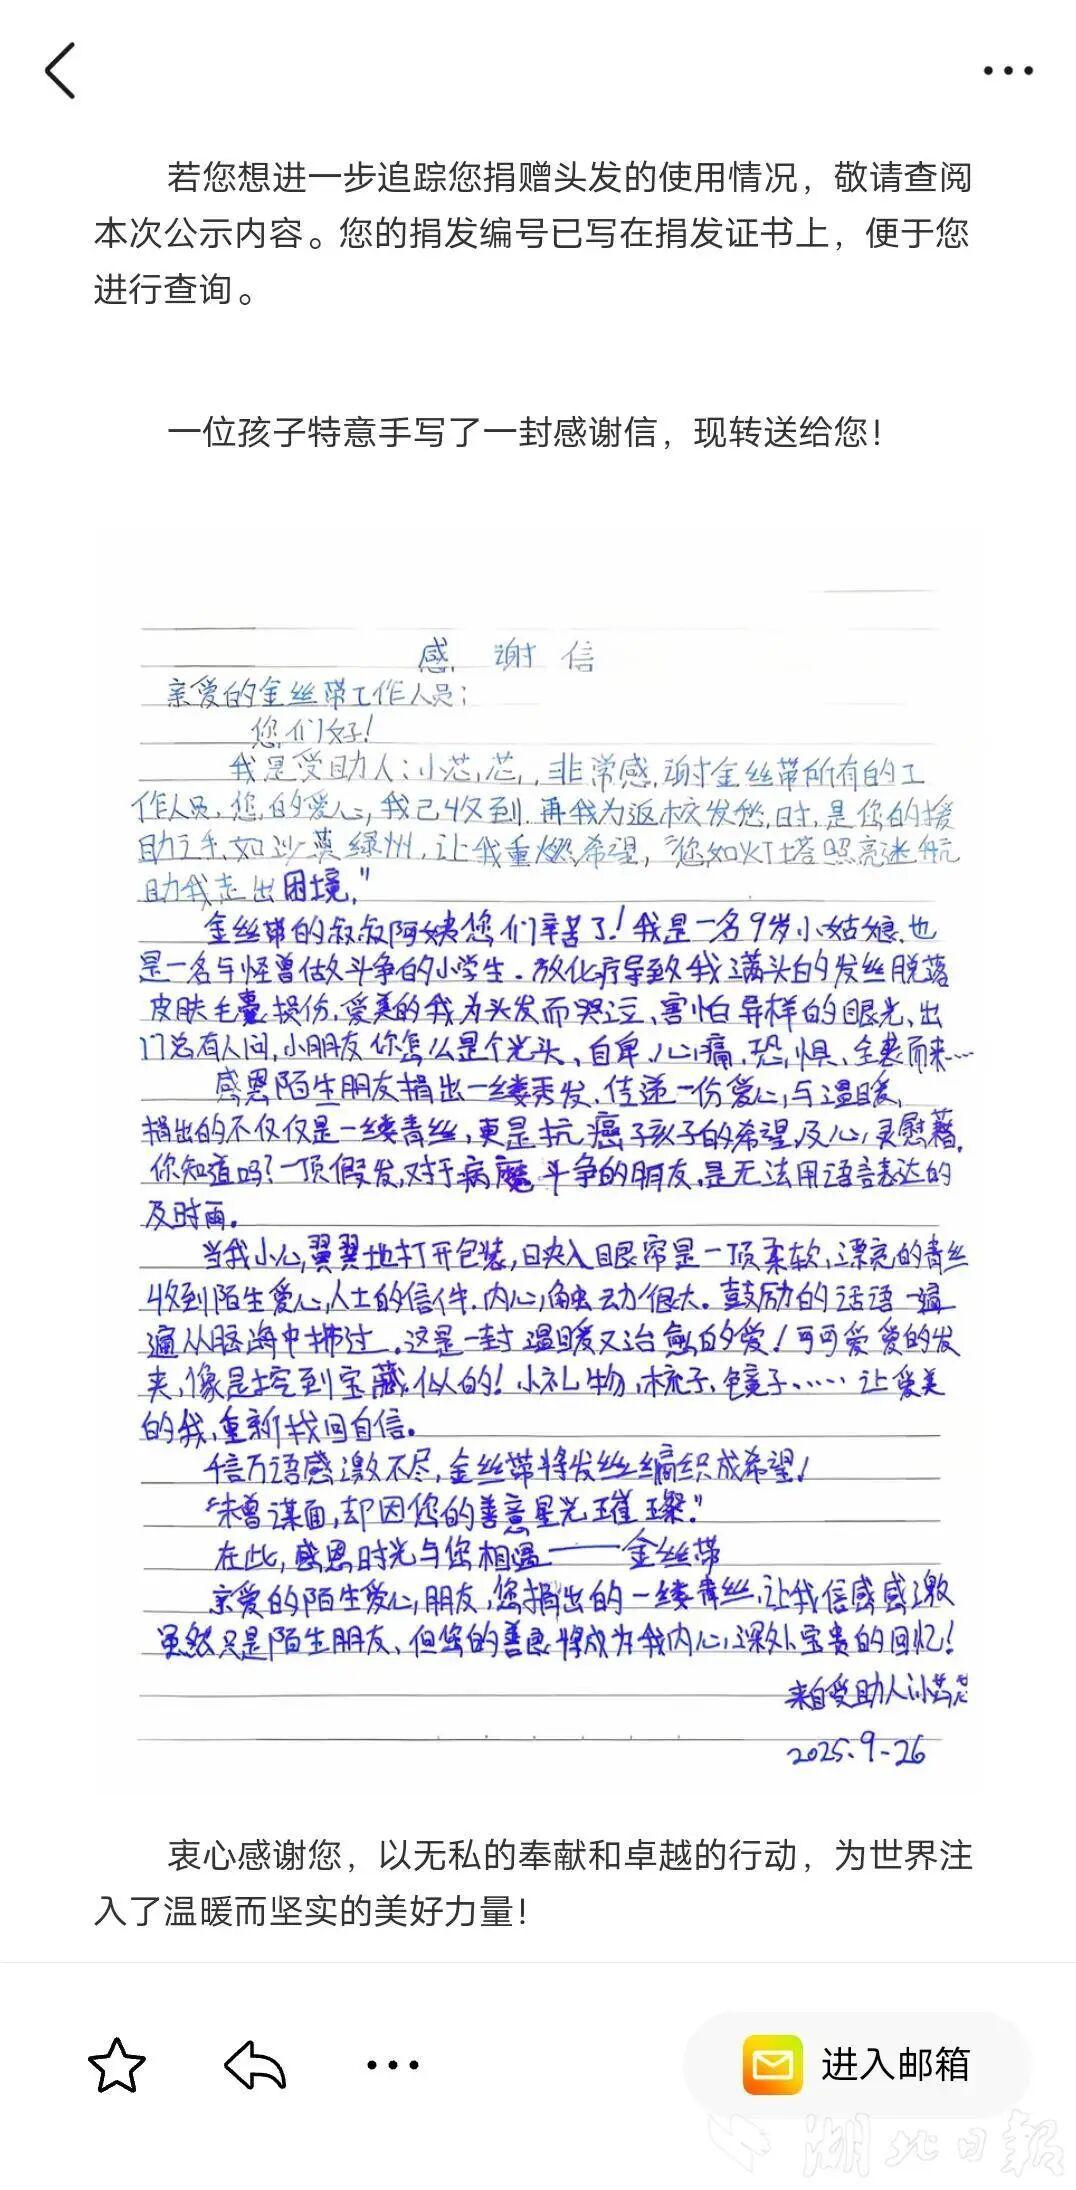 若您想进一步追踪您捐赠头发的使用情况，敬请查阅
本次公示内容。您的捐发编号已写在捐发证书上，便于您
进行查询。
一位孩子特意手写了一封感谢信，现转送给您！
感谢信
亲爱的金丝带工作人员：
您们好！
我是受助人：小芯芯，非常感谢金丝带所有的工
作人员，您的爱心，我已收到。再我为返校发愁时，是您的援
助之手，如沙漠绿洲，让我重燃希望，“您如灯塔照亮迷航
助我走出困境。”
金丝带的叔叔阿姨您们辛苦了！我是一名9岁小姑娘，也
是一名与怪兽做斗争的小学生。放化疗导致我满头的发丝脱落
皮肤毛囊损伤，爱美的我为头发而哭泣、害怕异样的眼光、出
门总有人问，小朋友你怎么是个光头、自卑、心痛、恐惧、全袭而来……
感恩陌生朋友捐出一缕秀发，传递一份爱心与温暖，
捐出的不仅仅是一缕青丝，更是抗癌子孩子的希望及心灵慰藉。
你知道吗？一顶假发，对于病魔斗争的朋友，是无法用语言表达的
及时雨。
当我小心翼翼地打开包装，映入眼帘是一顶柔软，漂亮的青丝
收到陌生爱心人士的信件，内心触动很大。鼓励的话语一遍
遍从脑海中拂过。这是一封温暖又治愈的爱！可可爱爱的发
夹，像是挖到宝藏似的！小礼物，梳子、镜子……让爱美
的我，重新找回自信。
千言万语感激不尽，金丝带将发丝编织成希望！
“未曾谋面，却因您的善意星光璀璨。”
在此，感恩时光与您相遇——金丝带
亲爱的陌生爱心朋友，您捐出的一缕青丝，让我倍感感激
虽然只是陌生朋友、但您的善良将成为我内心深处宝贵的回忆！
来自受助人小芯芯
2025.9-26
衷心感谢您，以无私的奉献和卓越的行动，为世界注
入了温暖而坚实的美好力量！
进入邮箱
湖北日报